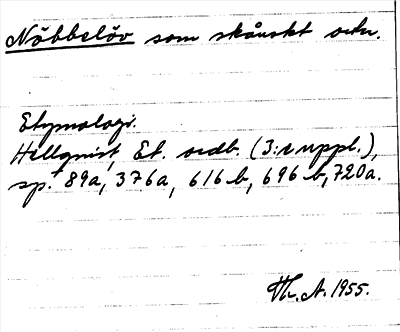 Nöbbelöv som skånskt ortn.
Etymologi.
Hellquist, Et. ordb. (3:e uppl.),
sp. 89a, 376a, 616b, 696b, 720a.
Th. A. 1955.